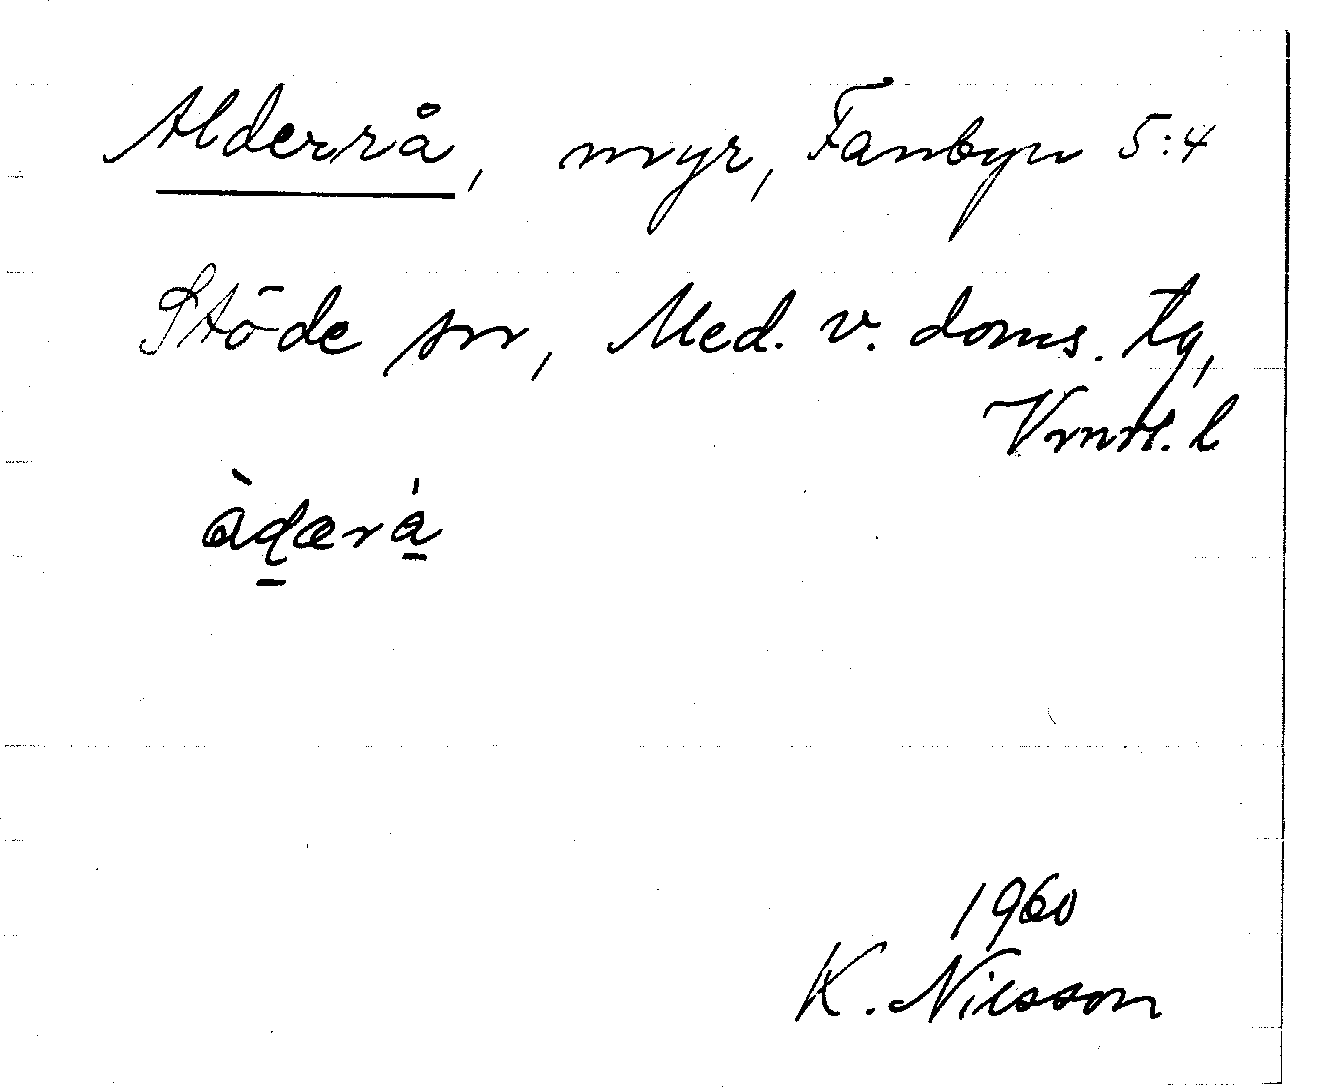 Alderrå, myr, Fanbyn 5:4
Stöde sn, Med. v. doms. tg,
Vrnrl. l
àd̠ærá̠
1960
K. Nilsson